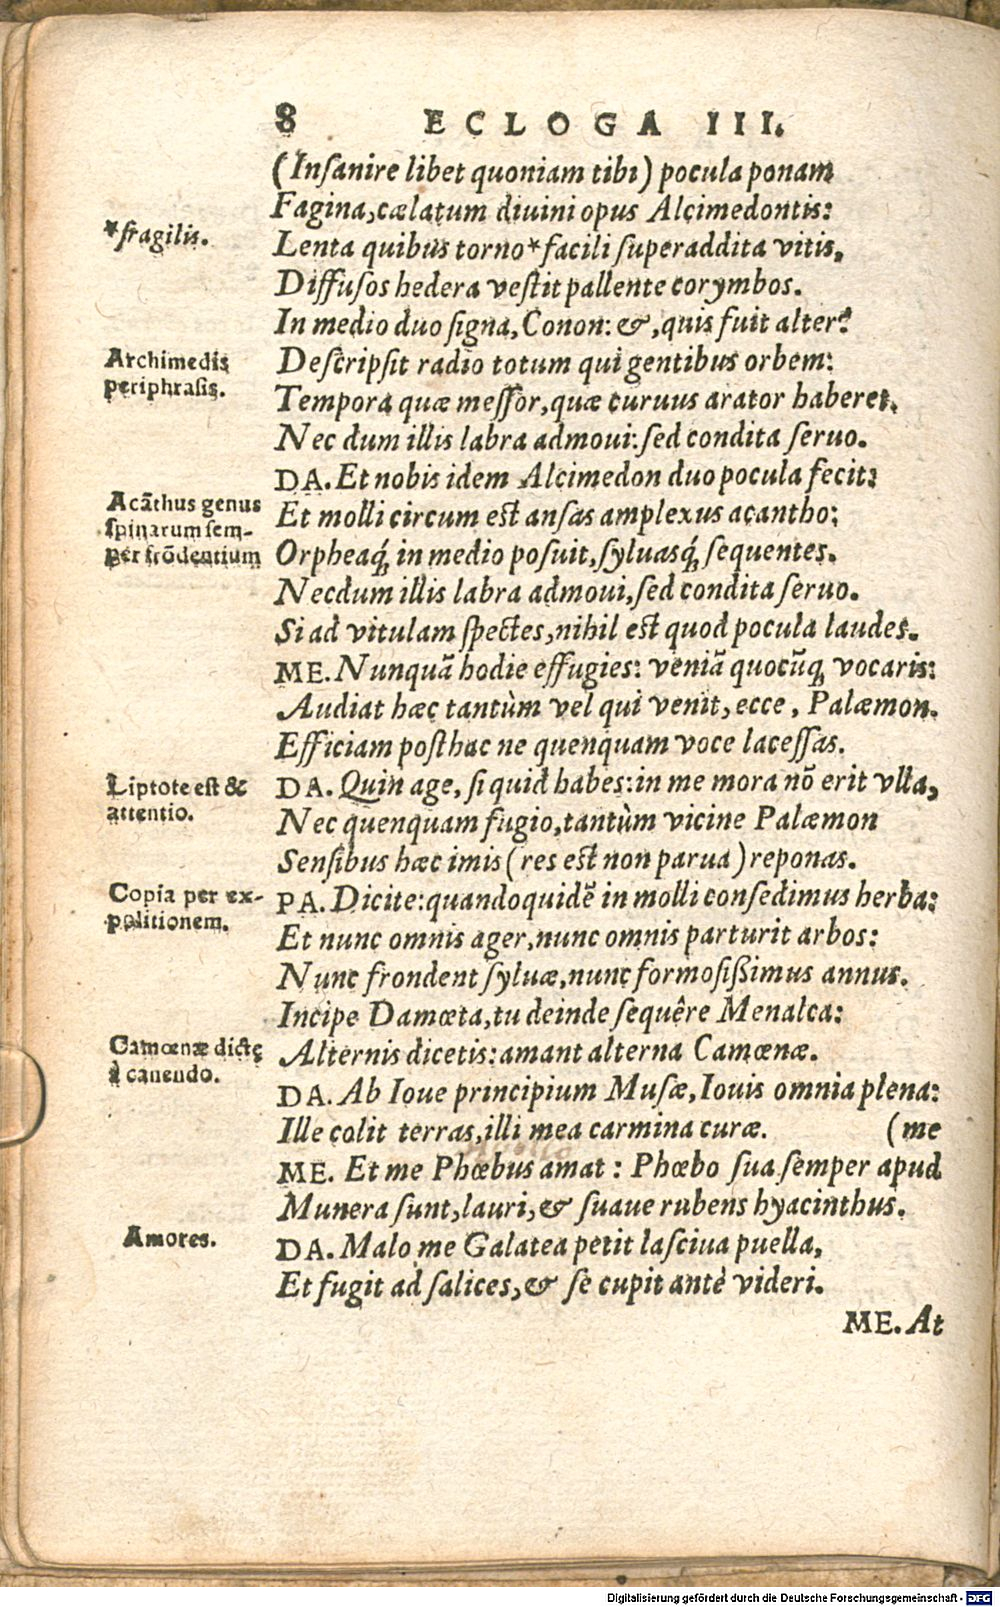 8 ECLOGA III.
(Inſanire libet quoniam tibi) pocula ponam
Fagina, cælatum diuini opus Alcimedontis:
*fragilis.
Lenta quibus torno* facili ſuperaddita vitis,
Diffuſos hedera veſtit pallente corymbos.
In medio duo ſigna, Conon: &, quis fuit alter?
Archimedis
periphraſis.
Deſcripſit radio totum qui gentibus orbem:
Tempora quæ meſſor, quæ curuus arator haberet.
Nec dum illis labra admoui: ſed condita ſeruo.
DA. Et nobis idem Alcimedon duo pocula fecit:
Acãthus genus
ſpinarum ſem-
per frõdentium
Et molli circum eſt anſas amplexus acantho:
Orpheaq́; in medio poſuit, ſyluasq́; ſequentes.
Necdum illis labra admoui, ſed condita ſeruo.
Si ad vitulam ſpectes, nihil eſt quod pocula laudes.
ME. Nunquã hodie effugies: veniã quocũq; vocaris:
Audiat hæc tantùm vel qui venit, ecce, Palæmon.
Efficiam poſthac ne quenquam voce laceſſas.
Liptote eſt &
attentio.
DA. Quin age, ſi quid habes: in me mora nõ erit vlla,
Nec quenquam fugio, tantùm vicine Palæmon
Senſibus hæc imis (res eſt non parua) reponas.
Copia per ex-
politionem.
PA. Dicite: quandoquidẽ in molli conſedimus herba:
Et nunc omnis ager, nunc omnis parturit arbos:
Nunc frondent ſyluæ, nunc formoſißimus annus.
Incipe Damœta, tu deinde ſequêre Menalca:
Camœnæ dictę
à canendo.
Alternis dicetis: amant alterna Camœnæ.
DA. Ab Ioue principium Muſæ, Iouis omnia plena:
Ille colit terras, illi mea carmina curæ. (me
ME. Et me Phœbus amat: Phœbo ſua ſemper apud
Munera ſunt, lauri, & ſuaue rubens hyacinthus.
Amores.
DA. Malo me Galatea petit laſciua puella,
Et fugit ad ſalices, & ſe cupit antè videri.
ME. At
Digitalisierung gefördert durch die Deutsche Forschungsgemeinschaft - DFG